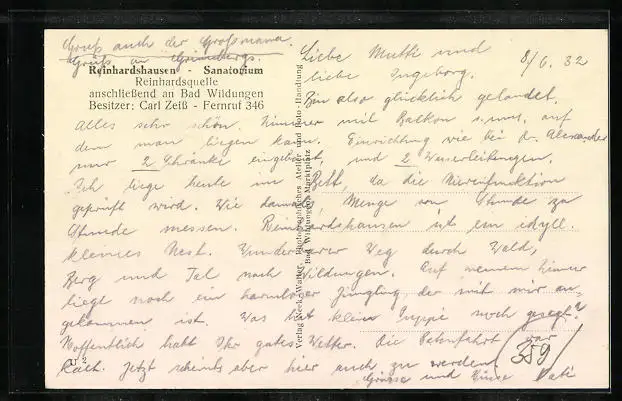 Gruß auch der Großmama.
Grüße an Grünebergs.
Reinhardshausen - Sanatorium
Reinhardsquelle
anschließend an Bad Wildungen
Besitzer: Carl Zeiß - Fernruf 346
8/6. 32
Liebe Mutti und
liebe Ingeborg.
Bin also glücklich gelandet.
Alles sehr schön. Zimmer mit Balkon s. aus, auf
dem man liegen kann. Einrichtung wie bei Dr. Alexander
nur 2 Schränke eingebaut, und 2 Wasserleitungen.
Ich liege heute im Bett, da die Nierenfunktion
geprüft wird. Wie damals, Menge von Stunde zu
Stunde messen. Reinhardshausen ist ein idyll.
kleines Nest. Wunderbarer Weg durch Wald,
Berg und Tal nach Wildungen. Auf meinem Zimmer
liegt noch ein harmloser Jüngling, der mit mir an-
gekommen ist. Was hat klein Puppi noch gesagt?
Hoffentlich habt Ihr gutes Wetter. Die Bahnfahrt war
Jetzt scheints aber hier auch zu werden.
Grüsse und Küsse Vati
359
U 2
Verlag Photographisches Atelier und Foto-Handlung
Bad Wildungen, Marktplatz